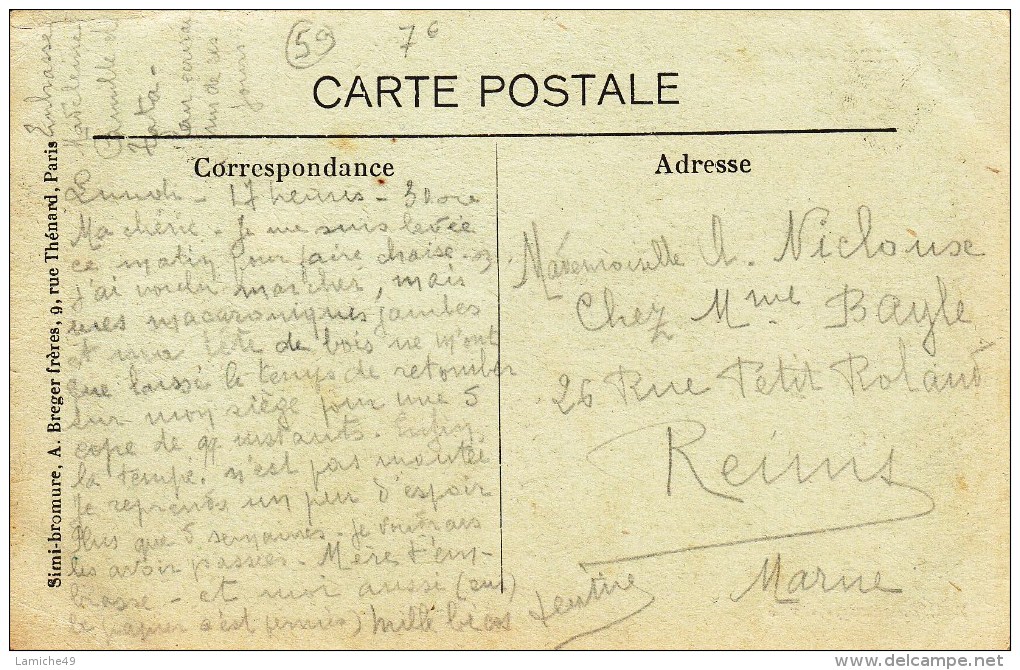 59
7 6
CARTE POSTALE
Correspondance
Adresse
Simi-bromure, A. Breger frères, 9, rue Thénard, Paris
Embrasse
Madeleine
Camille
Tata -
un de ces
jours
Lundi - 17 heures - 30
Ma chérie - Je me suis levée
ce matin pour faire chaise -
j'ai voulu marcher, mais
mes macaroniques jambes
et ma tête de bois ne m'ont
que laissé le temps de retomber
sur mon siège pour une 5
cope de qq instants. Enfin,
la tempé. n'est pas montée
Je reprends un peu d'espoir
Plus que 5 semaines. Je voudrais
les avoir passées. Mère t'em-
brasse - et moi aussi (sur)
le (papier s'est permis) mille bécos
Mademoiselle A. Niclouse
Chez Mme Bayle
26 Rue Petit Roland
Reims
Marne
Lamiche49
delcampe.net